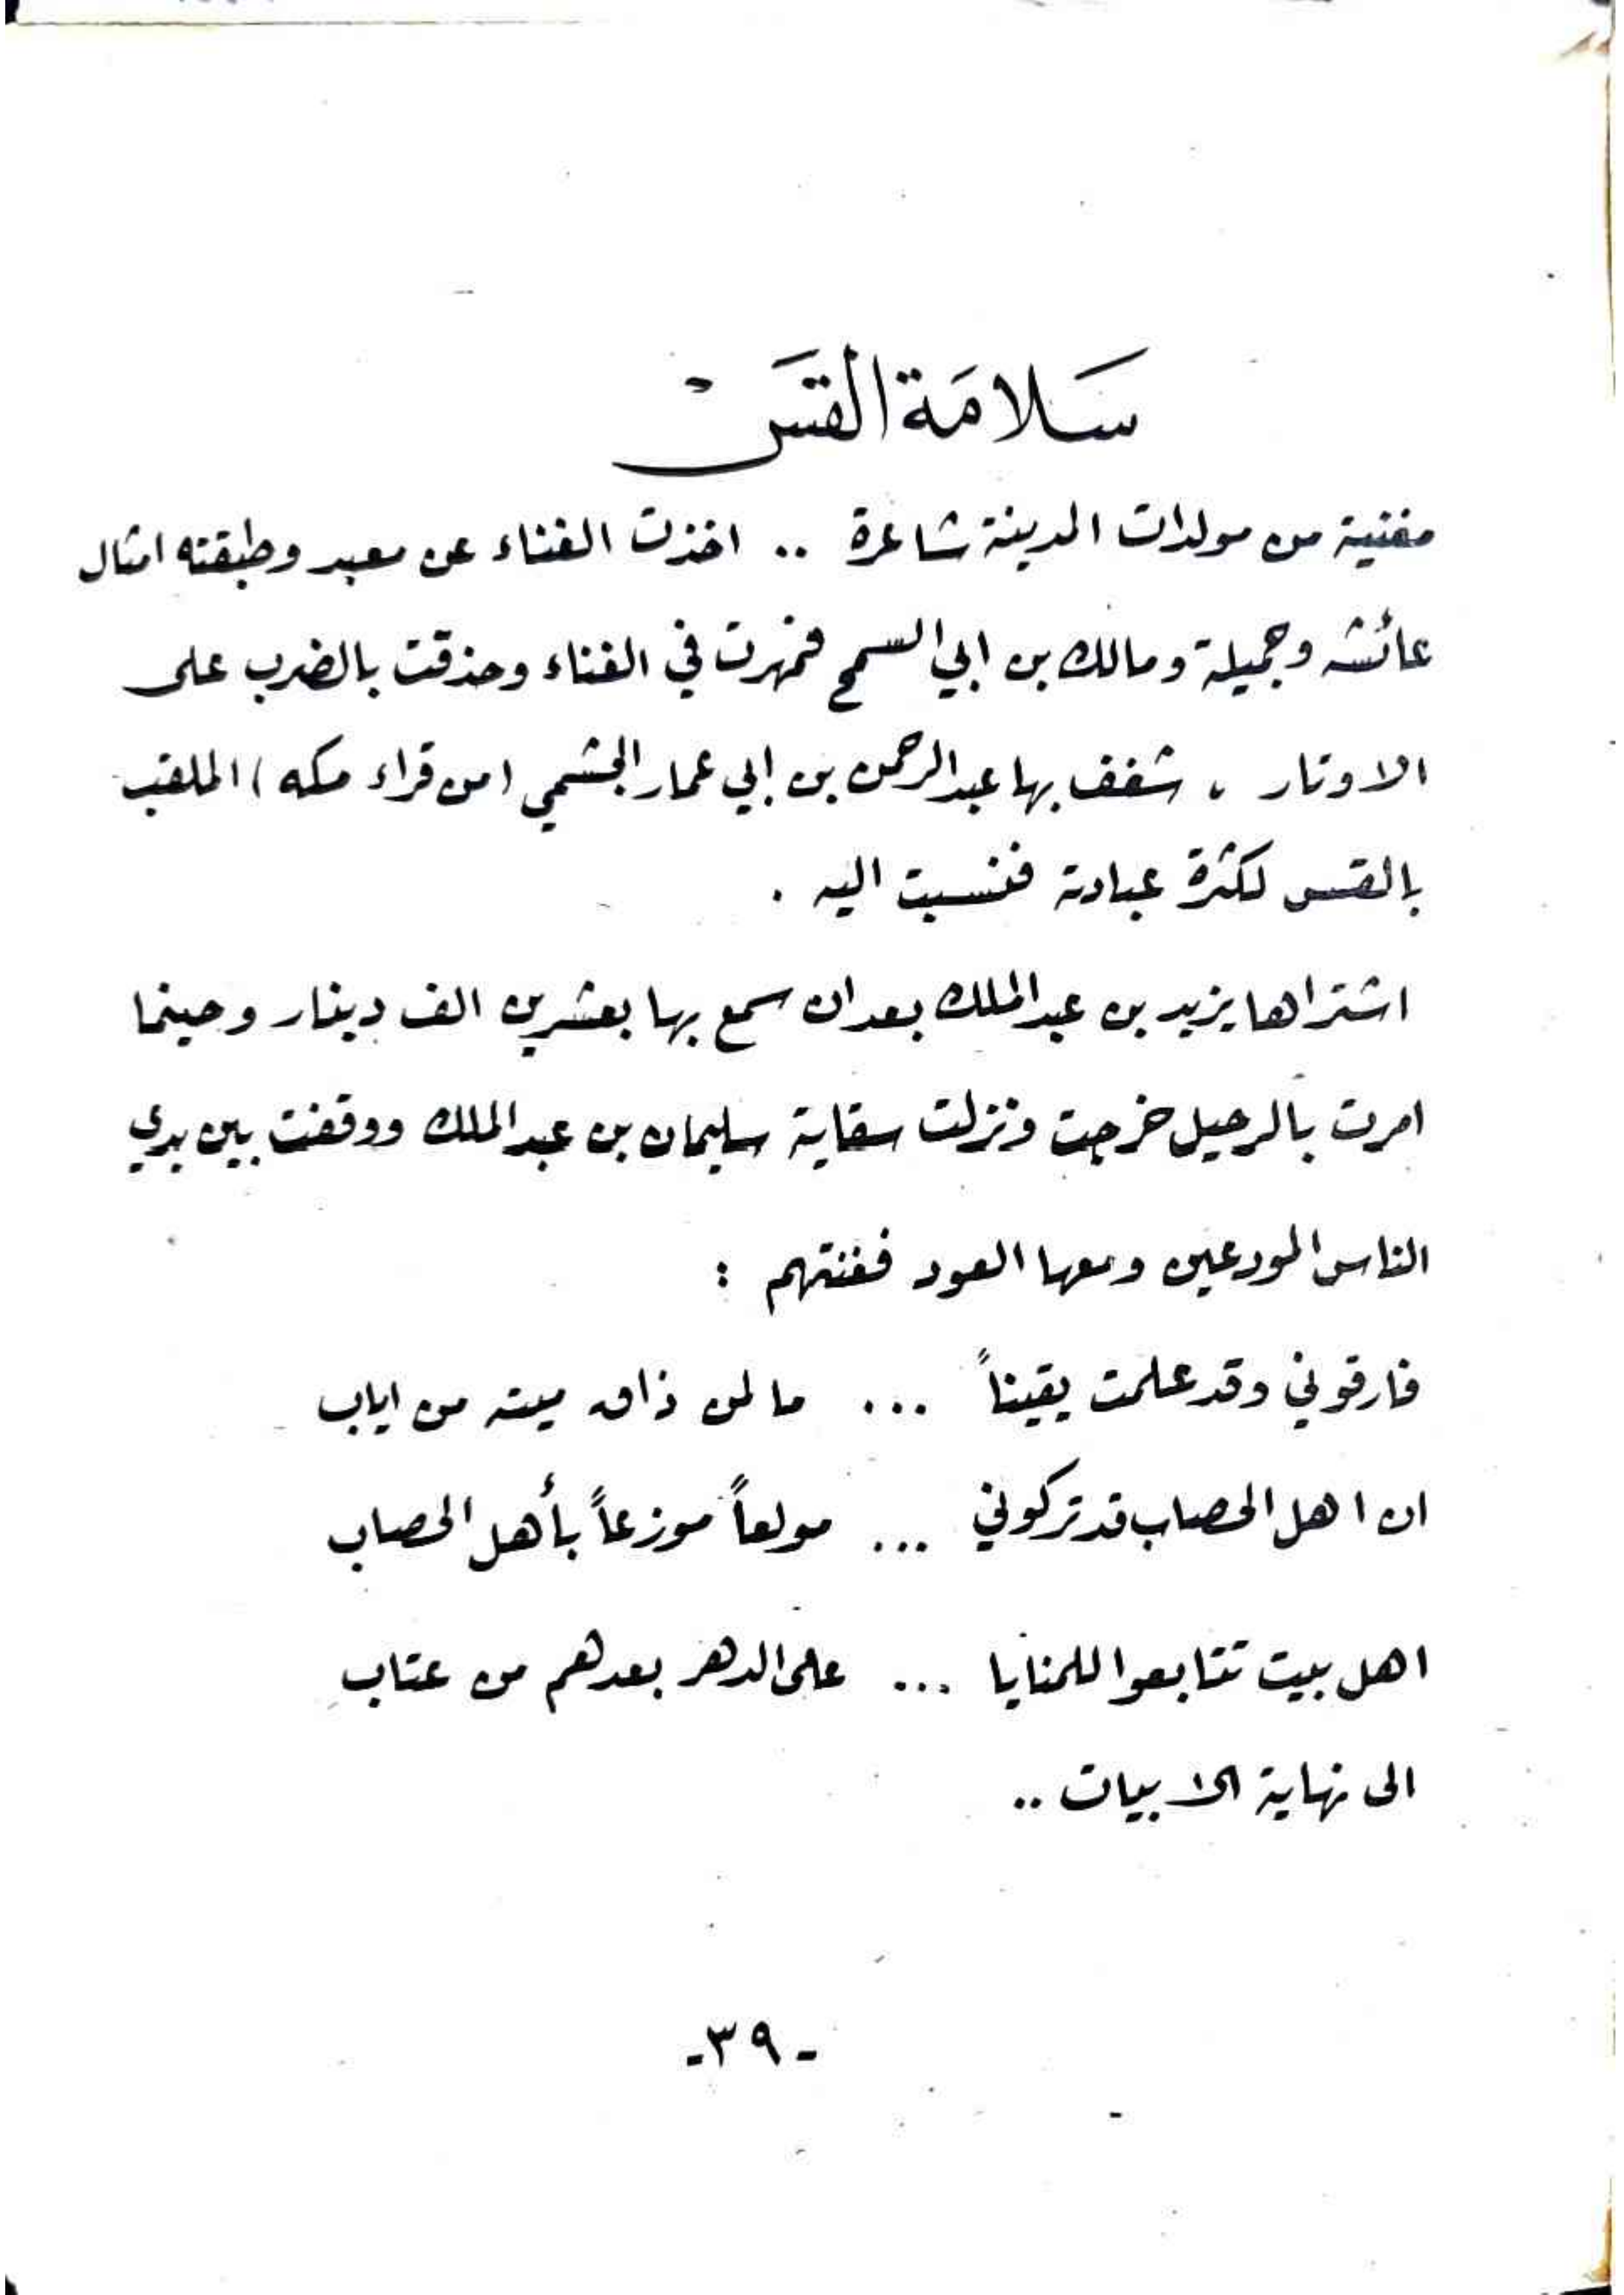 سَلامَة القَسْ
مغنية من مولدات المدينة شاعرة .. اخذت الغناء عن معبد وطبقته امثال
عائشه وجميلة ومالك بن ابي السمح فمهرت في الغناء وحذقت بالضرب على
الاوتار ، شغف بها عبدالرحمن بن إبي عمار الجشمي (من قراء مكه) الملقب
بالقس لكثرة عبادته فنسبت اليه .
اشتراها يزيد بن عبدالملك بعدان سمع بها بعشرين الف دينار وحينما
امرت بالرحيل خرجت ونزلت سقاية سليمان بن عبدالملك ووقفت بين يدي
الناس المودعين ومعها العود فغنتهم :
فارقوني وقد علمت يقيناً ... ما لمن ذاق ميته من اياب
ان اهل الحصاب قد تركوني ... مولعاً موزعاً بأهل الحصاب
اهل بيت تتابعوا للمنايا ... على الدهر بعدهم من عتاب
الى نهاية الابيات ..
-٣٩-